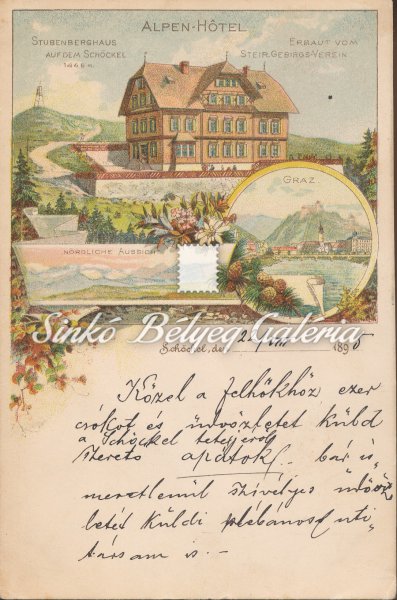 ALPEN-HÔTEL
STUBENBERGHAUS
AUF DEM SCHÖCKEL
1446 M.
ERBAUT VOM
STEIR. GEBIRGS-VEREIN
GRAZ
NÖRDLICHE AUSSICHT
Sinkó Bélyeg Galéria
Schöckel, de 189
Közel a felhőkhöz ezer
csókot és üdvözletet küld
a Schöckel tetejéről
szerető apátok! bár is
meretlenül szívélyes üdvöz
letét küldi plébános uti
társam is. –